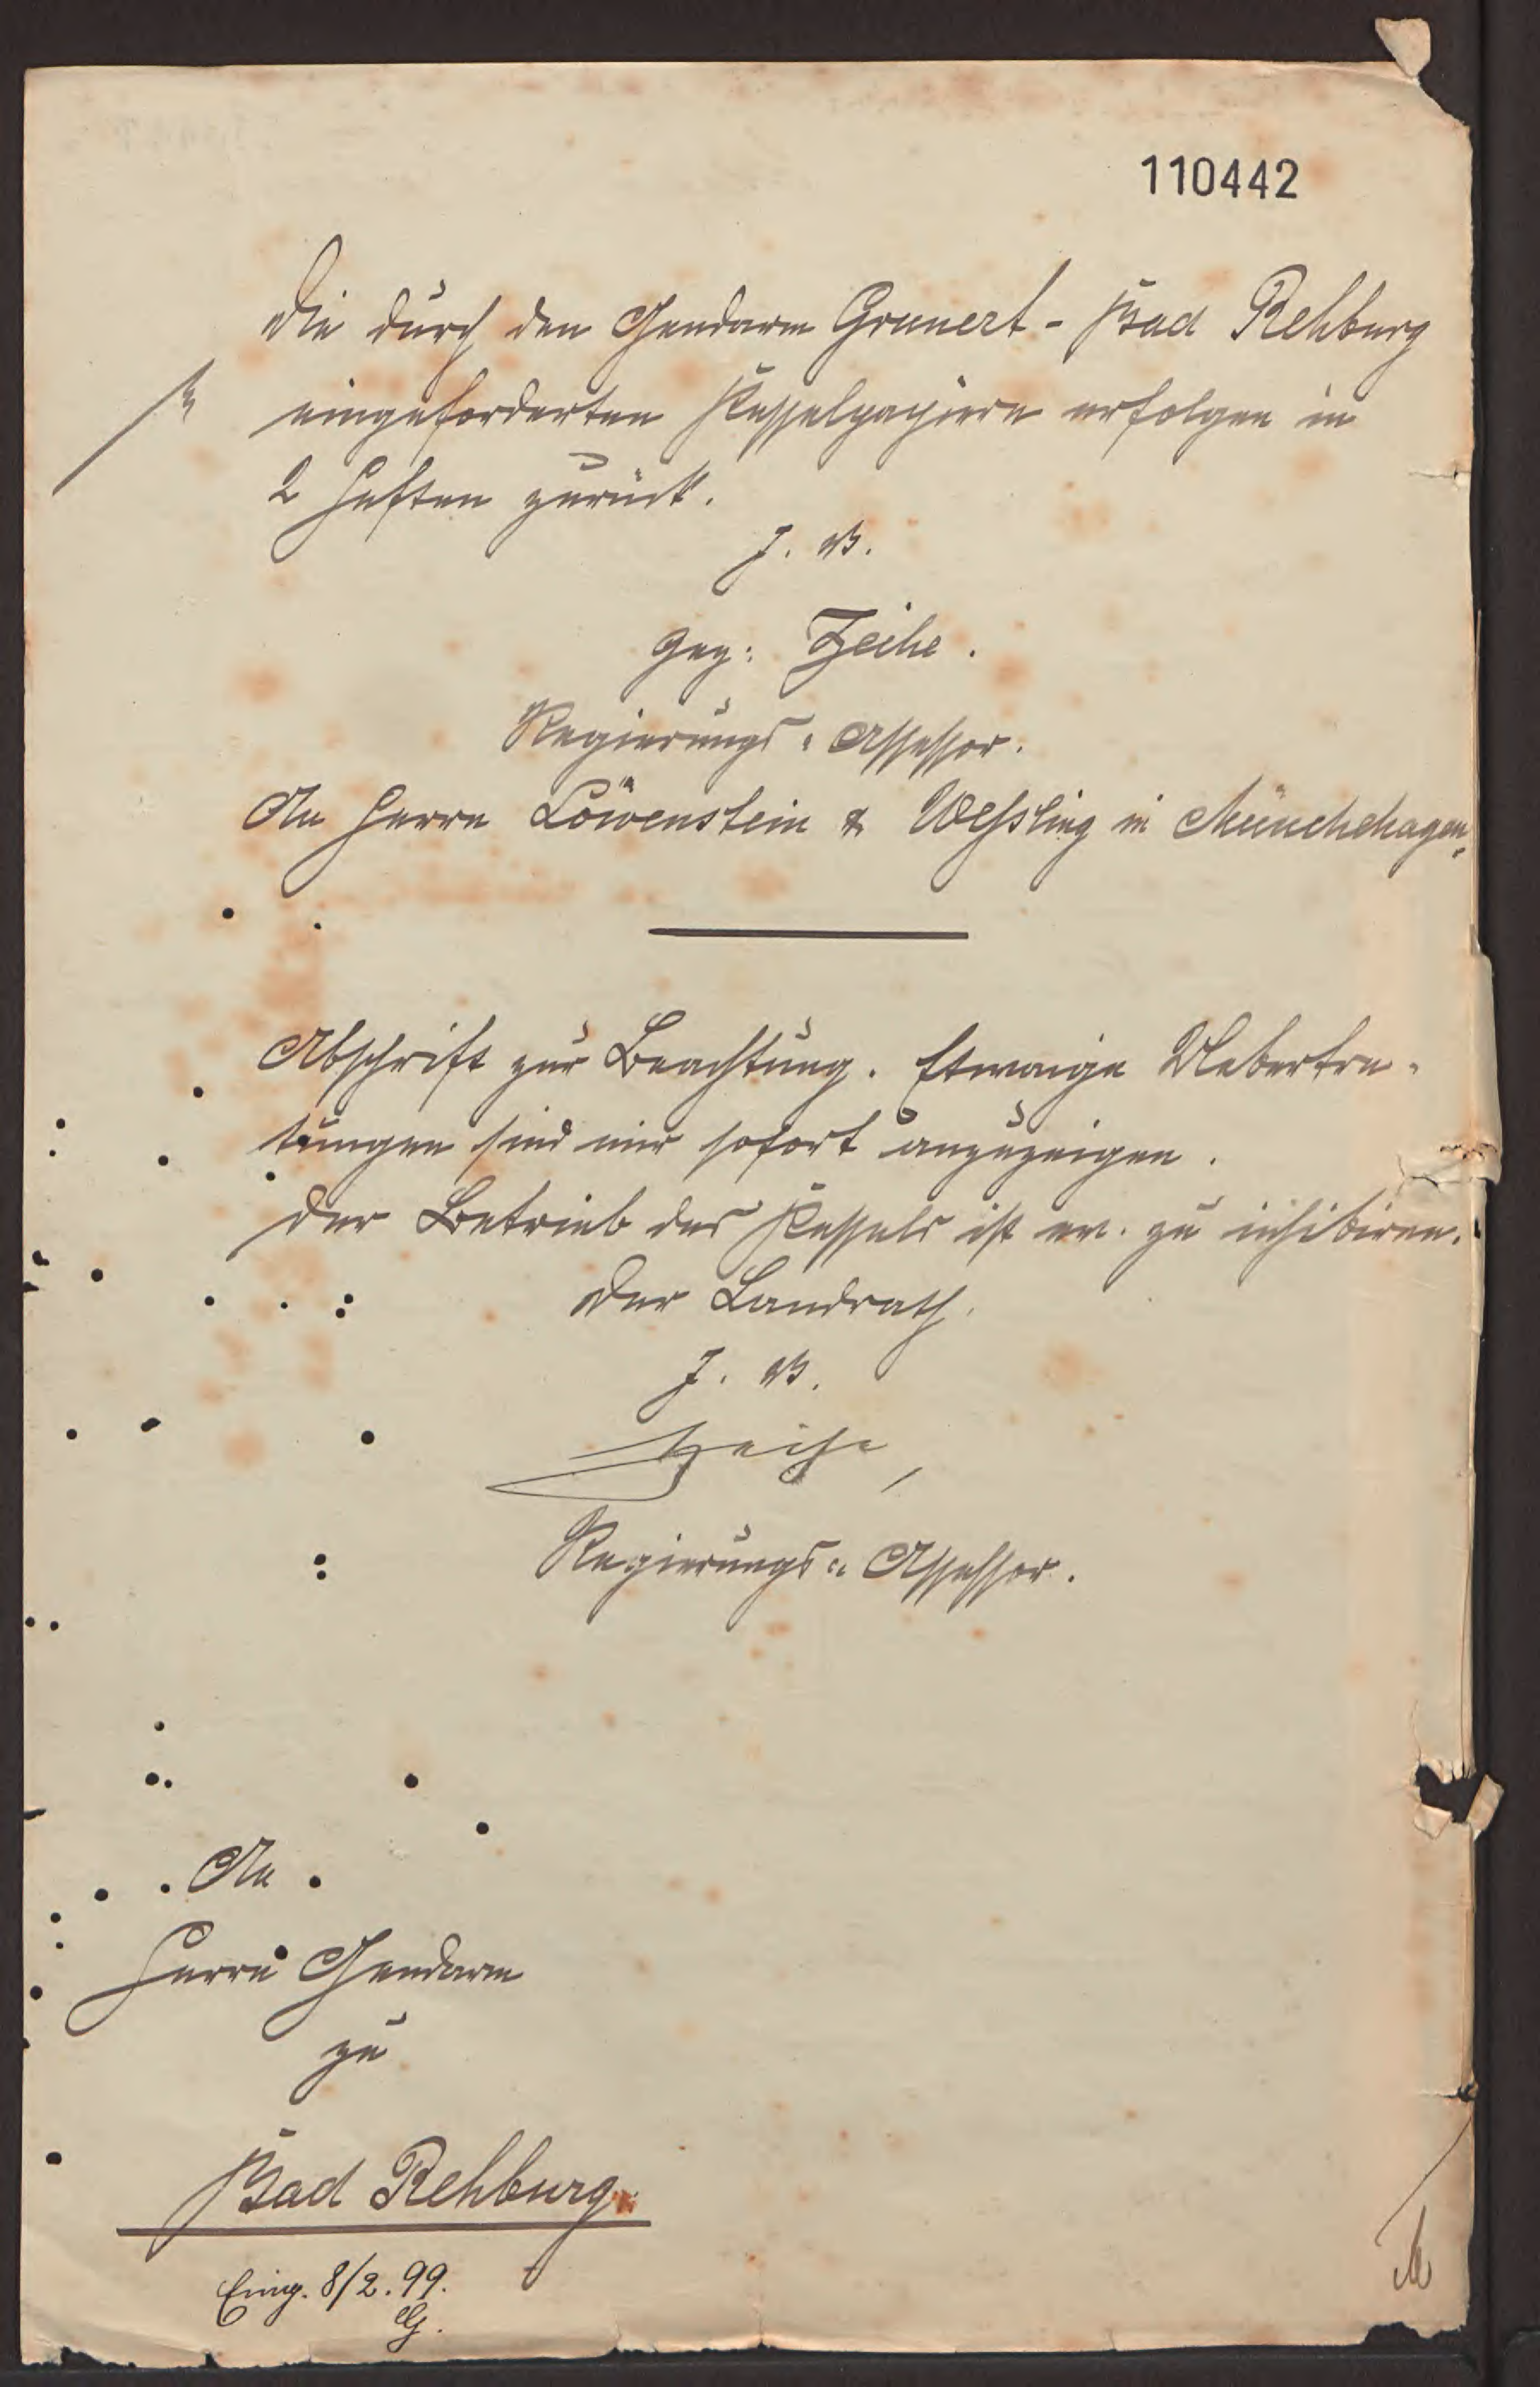 110442
Die durch den Gendarm Grunert - Bad Rehburg
eingeforderten Kesselpapiere erfolgen in
2 Heften zurück.
J. V.
gez: Zeihe.
Regierungs-Assessor.
An Herrn Löwenstein & Weßling in Münchehagen.
Abschrift zur Beachtung. Etwaige Uebertre-
tungen sind mir sofort anzuzeigen.
Der Betrieb des Kessels ist ev. zu inhibiren.
Der Landrath.
J. V.
Zeihe,
Regierungs-Assessor.
An
Herrn Gendarm
zu
Bad Rehburg.
Eing. 8/2.99.
G.